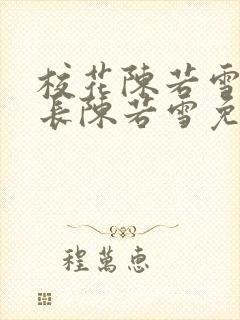 校花陳若雪
長陳若雪免
程萬惠